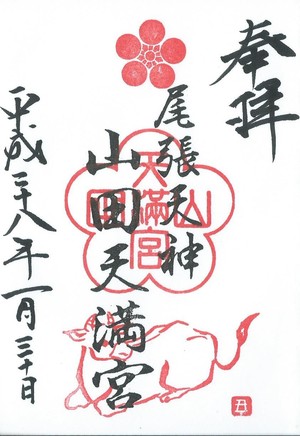 奉拝
尾張天神
山田天満宮
平成二十八年一月三十日
山田天満宮